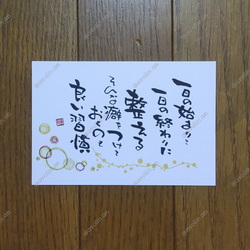 一日の始まりと
一日の終わりに
整える
そんな癖をつけて
おくのも
良い習慣